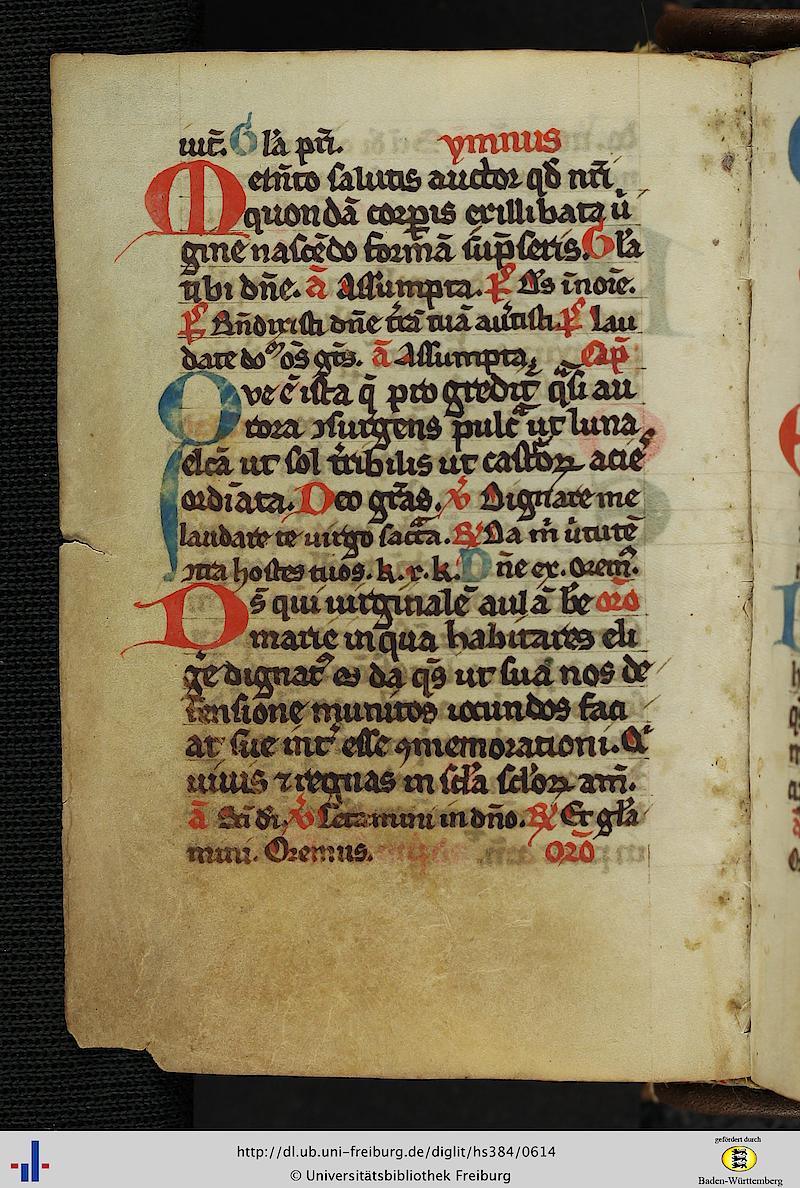 iuꝭ. Gla pri. ymnus
Memto salutis auctor qd nri
quondā corpis exillibata ů
gine nascēdo formā supseris. Gla
tibi dn̄e. ā Assumpta. p̄s Ds ī noīe.
p̄s Bn̄dixisti dn̄e trā tuā auertisti. p̄s lau
date do os gtes. ā Assumpta. Cap
Que ē ista q̄ progredit qsi au
rora ↄsurgens pulcᵃ ut luna
elcā ut sol tribilis ut castroꝝ acies
ordiāta. Deo gr̄as. ꝟ Dignare me
laudare te uirgo sacᵃta. ℞ Da m ututē
ↄtra hostes tuos. k. x. k. Dn̄e ex. orem.
Ds̄ qui uirginalē aulā be oro
marie in qua habitares eli
gē dignatꝰ es da qs ut sua nos de
fensione munitos iocundos faci
at sue int esse ꝯmemorationi. Qi
uiuis ⁊ regnas in scl̄a scl̄oꝝ am̄.
ā Sci di. ꝟ Letamini in dn̄o. ℞ Et gl̄a
mini. Oremus. Oro
http://dl.ub.uni-freiburg.de/diglit/hs384/0614
© Universitätsbibliothek Freiburg
gefördert durch
Baden-Württemberg